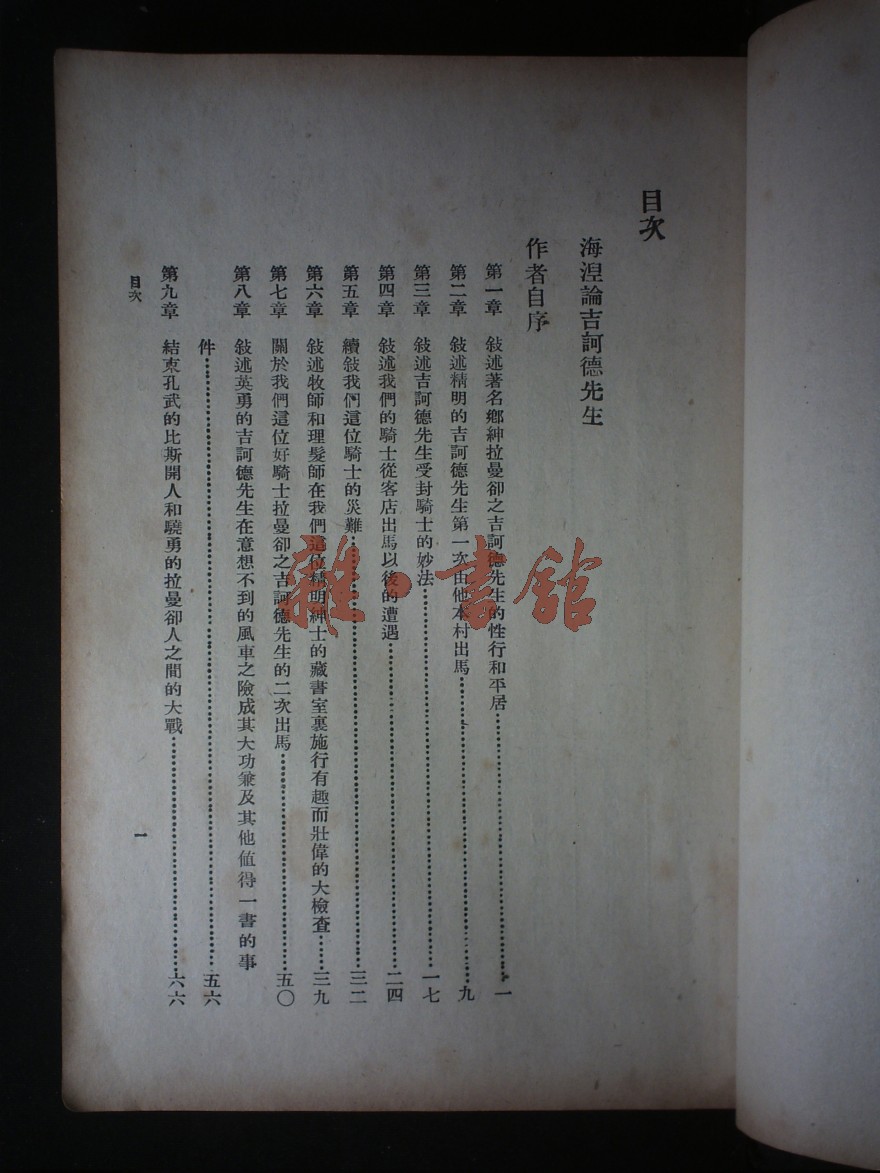 目次
海涅論吉訶德先生
作者自序
第一章 敍述著名鄉紳拉曼卻之吉訶德先生的性行和平居……一
第二章 敍述精明的吉訶德先生第一次由他本村出馬……九
第三章 敍述吉訶德先生受封騎士的妙法……一七
第四章 敍述我們的騎士從客店出馬以後的遭遇……二四
第五章 續敍我們這位騎士的災難……三二
第六章 敍述牧師和理髮師在我們這位精明紳士的藏書室裏施行有趣而壯偉的大檢查……三九
第七章 關於我們這位好騎士拉曼卻之吉訶德先生的二次出馬……五〇
第八章 敍述英勇的吉訶德先生在意想不到的風車之險成其大功兼及其他値得一書的事
件……五六
第九章 結束孔武的比斯開人和驍勇的拉曼卻人之間的大戰……六六
目次
一
雜·書館